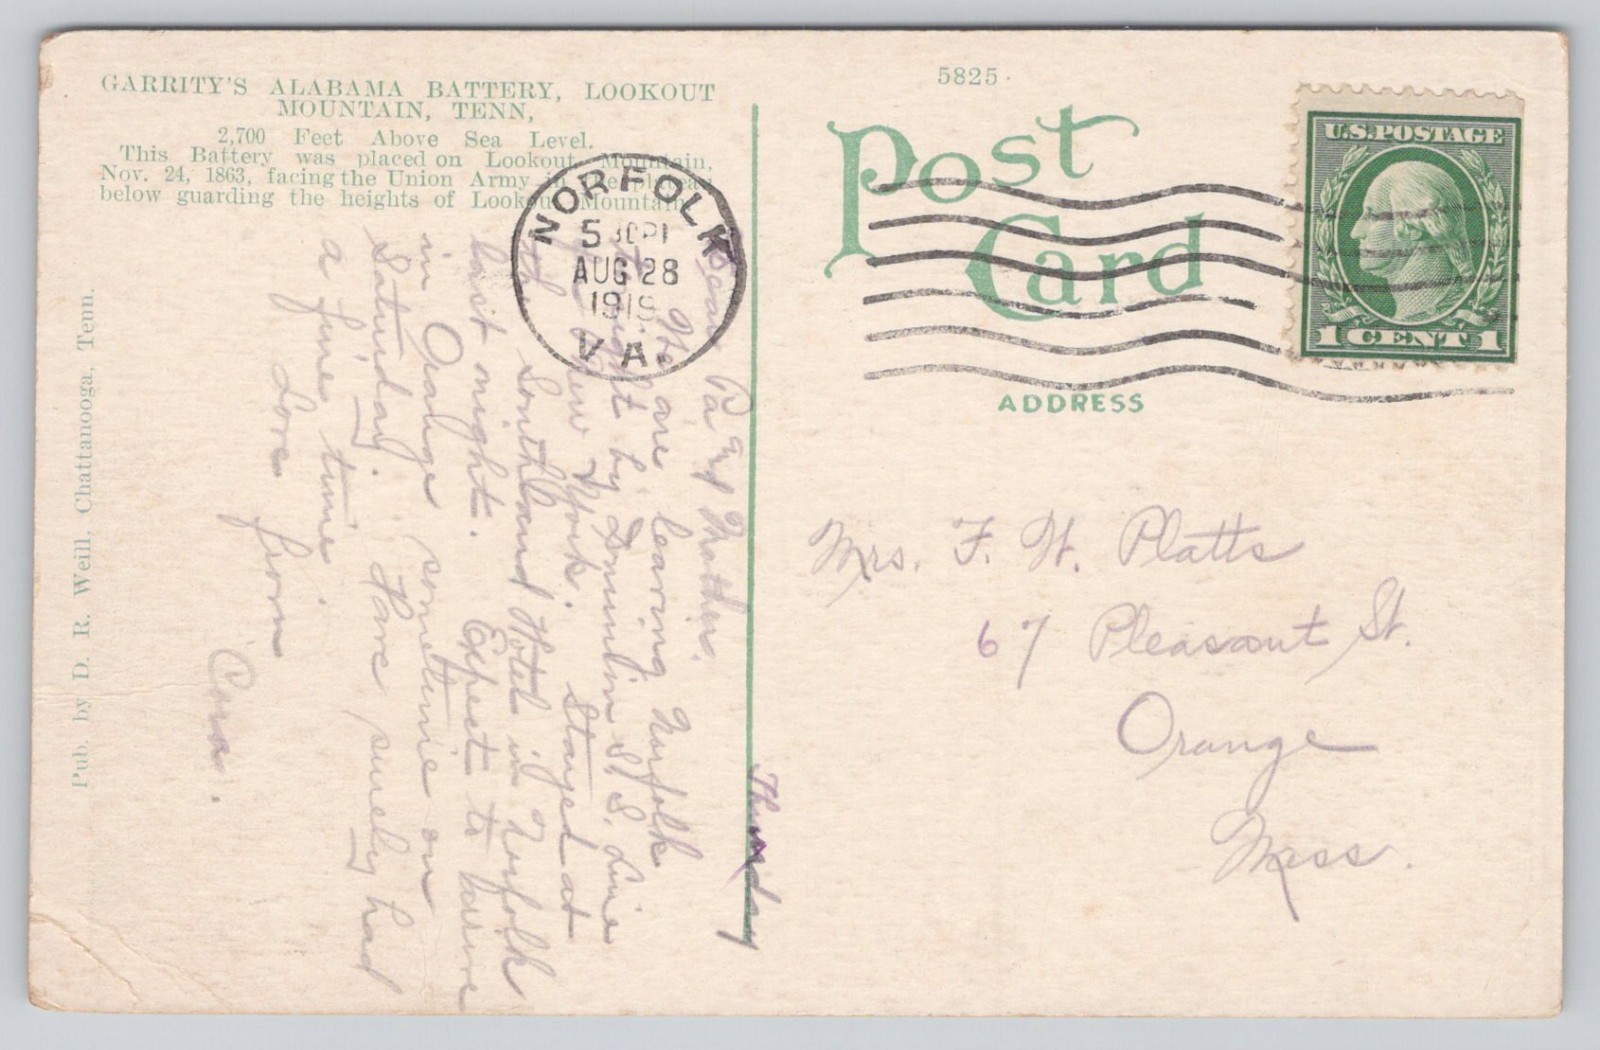 GARRITY'S ALABAMA BATTERY, LOOKOUT
MOUNTAIN, TENN,
2,700 Feet Above Sea Level.
This Battery was placed on Lookout Mountain,
Nov. 24, 1863, facing the Union Army in the plateau
below guarding the heights of Lookout Mountain
Pub. by D. R. Weill, Chattanooga, Tenn.
5825
Post
Card
ADDRESS
U.S. POSTAGE
1 CENT 1
NORFOLK
5 30 P
AUG 28
1919
VA.
Thursday
Dear Pa and Mother.
We are leaving Norfolk
to-night by Dominion S. S. Line
for New York. Stayed at
the Southland Hotel in Norfolk
last night. Expect to arrive
in Orange sometime on
Saturday. Have surely had
a fine time.
Love from
Cora.
Mrs. F. W. Platts
67 Pleasant St.
Orange
Mass.